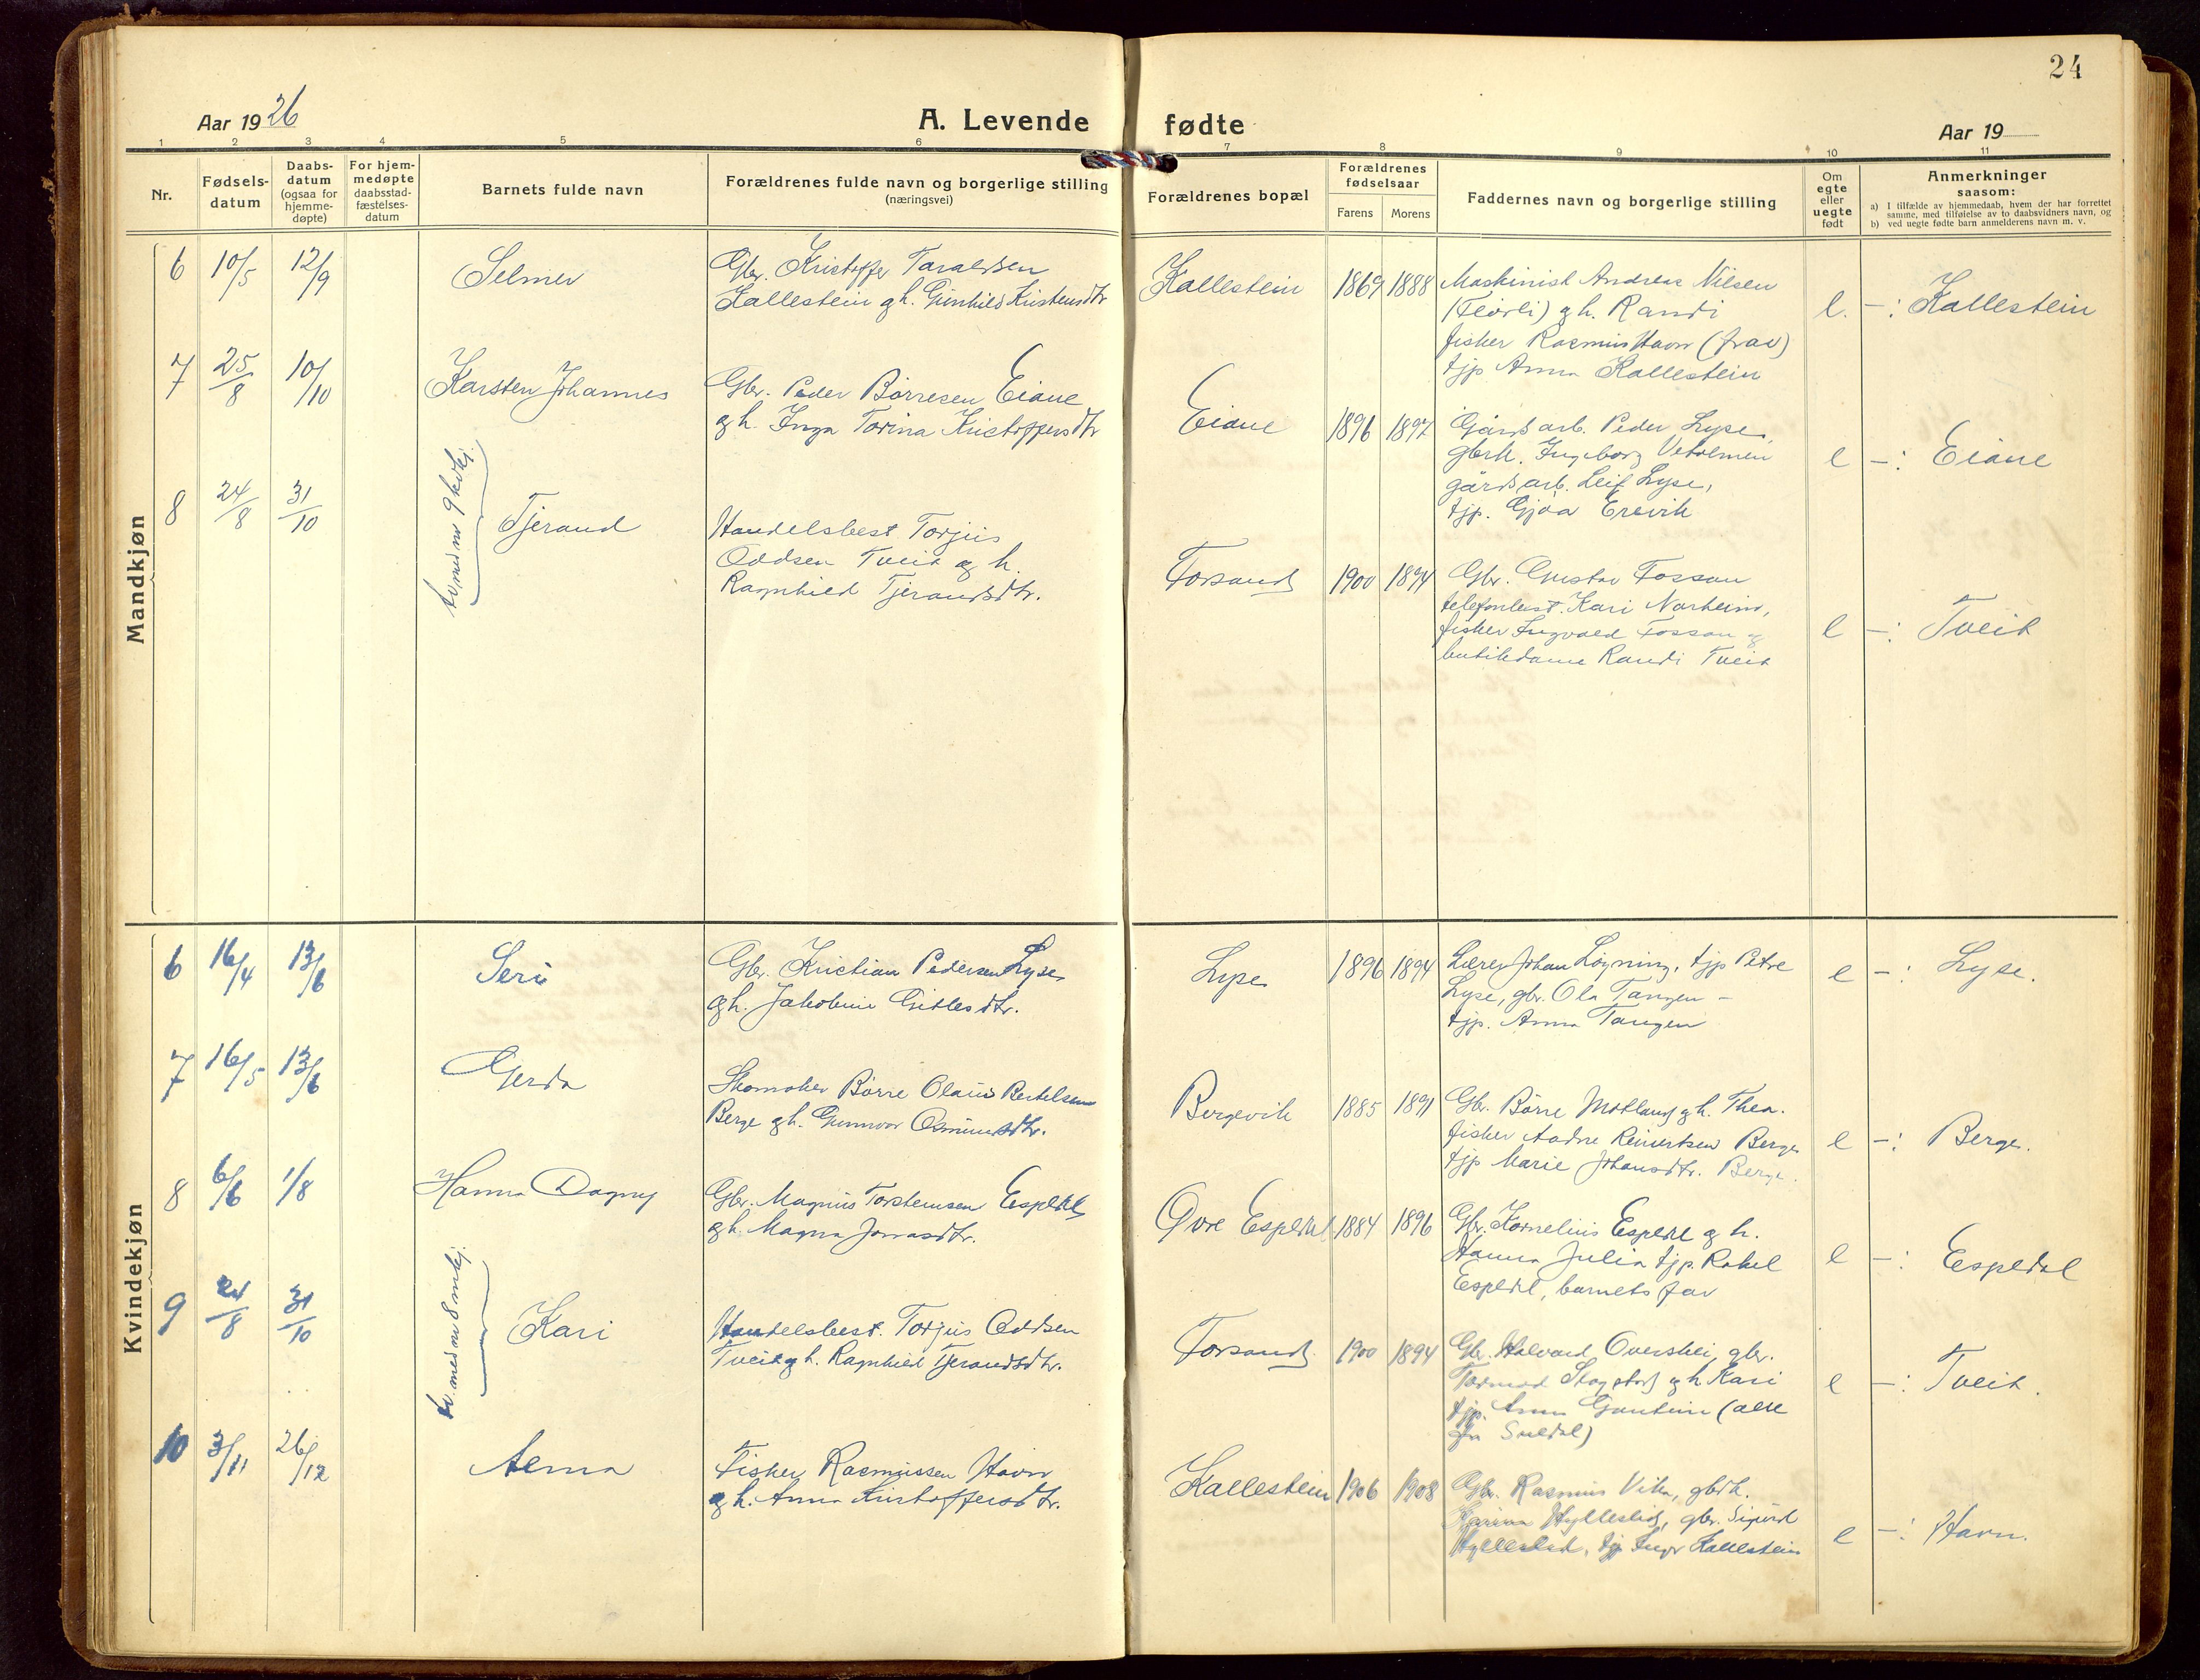 24
Aar 1926
A. Levende fødte
Aar 19
1 2 3 4 5 6 7 8 9 10 11
Nr.
Fødsels-
datum
Daabs-
datum
(ogsaa for
hjemme-
døpte)
For hjem-
medøpte
daabsstad-
fæstelses-
datum
Barnets fulde navn
Forældrenes fulde navn og borgerlige stilling
(næringsvei)
Forældrenes bopæl
Forældrenes
fødselsaar
Farens Morens
Faddernes navn og borgerlige stilling
Om
egte
eller
uegte
født
Anmerkninger
saasom:
a) I tilfælde av hjemmedaab, hvem der har forrettet
samme, med tilføielse av to daabsvidners navn, og
b) ved uegte fødte barn anmelderens navn m. v.
Mandkjøn
6 10/5 12/9 Selmer
Gbr. Kristoffer Taraldsen
Kallestein og h. Gunhild Kristensdtr
Kallestein 1869 1888
Maskinist Andreas Nilsen
(Flørli) og h. Randi
fisker Rasmus Havn (frav)
tjp Anna Kallestein
e. -: Kallestein
7 25/8 10/10 Karsten Johannes
Gbr. Peder Børresen Eiane
og h. Inga Torina Kristoffersdtr
Eiane 1896 1897
Gårdsarb. Peder Lyse,
gbrk. Ingeborg Vetolmen
gårdsarb. Leif Lyse,
tjp. Gjøa Erevik
e -: Eiane
8 24/8 31/10 tv. med nr 9 kvkj. Tjerand
Handelsbest Torjus
Oddsen Tveit og h.
Ragnhild Tjerandsdtr.
Forsand 1900 1894
Gbr. Gustav Fossan
telefonbest. Kari Norheim,
fisker Ingvald Fossan og
butikdame Randi Tveit
e -: Tveit
Kvindekjøn
6 16/4 13/6 Seri
Gbr. Kristian Pedersen Lyse
og h. Jakobine Gitlesdtr.
Lyse 1896 1894
Lærer Johan Løyning, tjp Petre
Lyse, gbr. Ola Tangen -
tjp. Anna Tangen
e -: Lyse.
7 16/5 13/6 Gerda
Skomaker Børre Olaus Bertelsen
Berge og h. Gunnvor Osmundsdtr.
Bergevik 1885 1891
Gbr. Børre Motland og h. Thea.
fisker Andre Reinertsen Berge
tjp Marie Johansdtr. Berge.
e -: Berge.
8 6/6 1/8 Hanna Dagny
Gbr. Magnus Torstensen Espedal
og h. Magna Jonasdtr.
Øvre Espedal 1884 1896
Gbr. Kornelius Espedal og h.
Hanna Julia tjp. Rakel
Espedal, barnets far
e -: Espedal
9 24/8 31/10 tv. med nr 8 mkj. Kari
Handelsbest. Torjus Oddsen
Tveit og h. Ragnhild Tjerandsdtr.
Forsand 1900 1894
Gbr. Halvard Overskei, gbr.
Tormod Stogstad og h Kari
tjp. Anna Gautun (alle
fra Suldal)
e -: Tveit.
10 3/11 26/12 Aerna
Fisker Rasmussen Havn
og h. Anna Kristoffersdtr.
Kallestein 1906 1908
Gbr. Rasmus Vika, gbdk.
Karina Hyllestad, gbr. Sigurd
Hyllestad, tjp Inga Kallestein
e -: Havn.